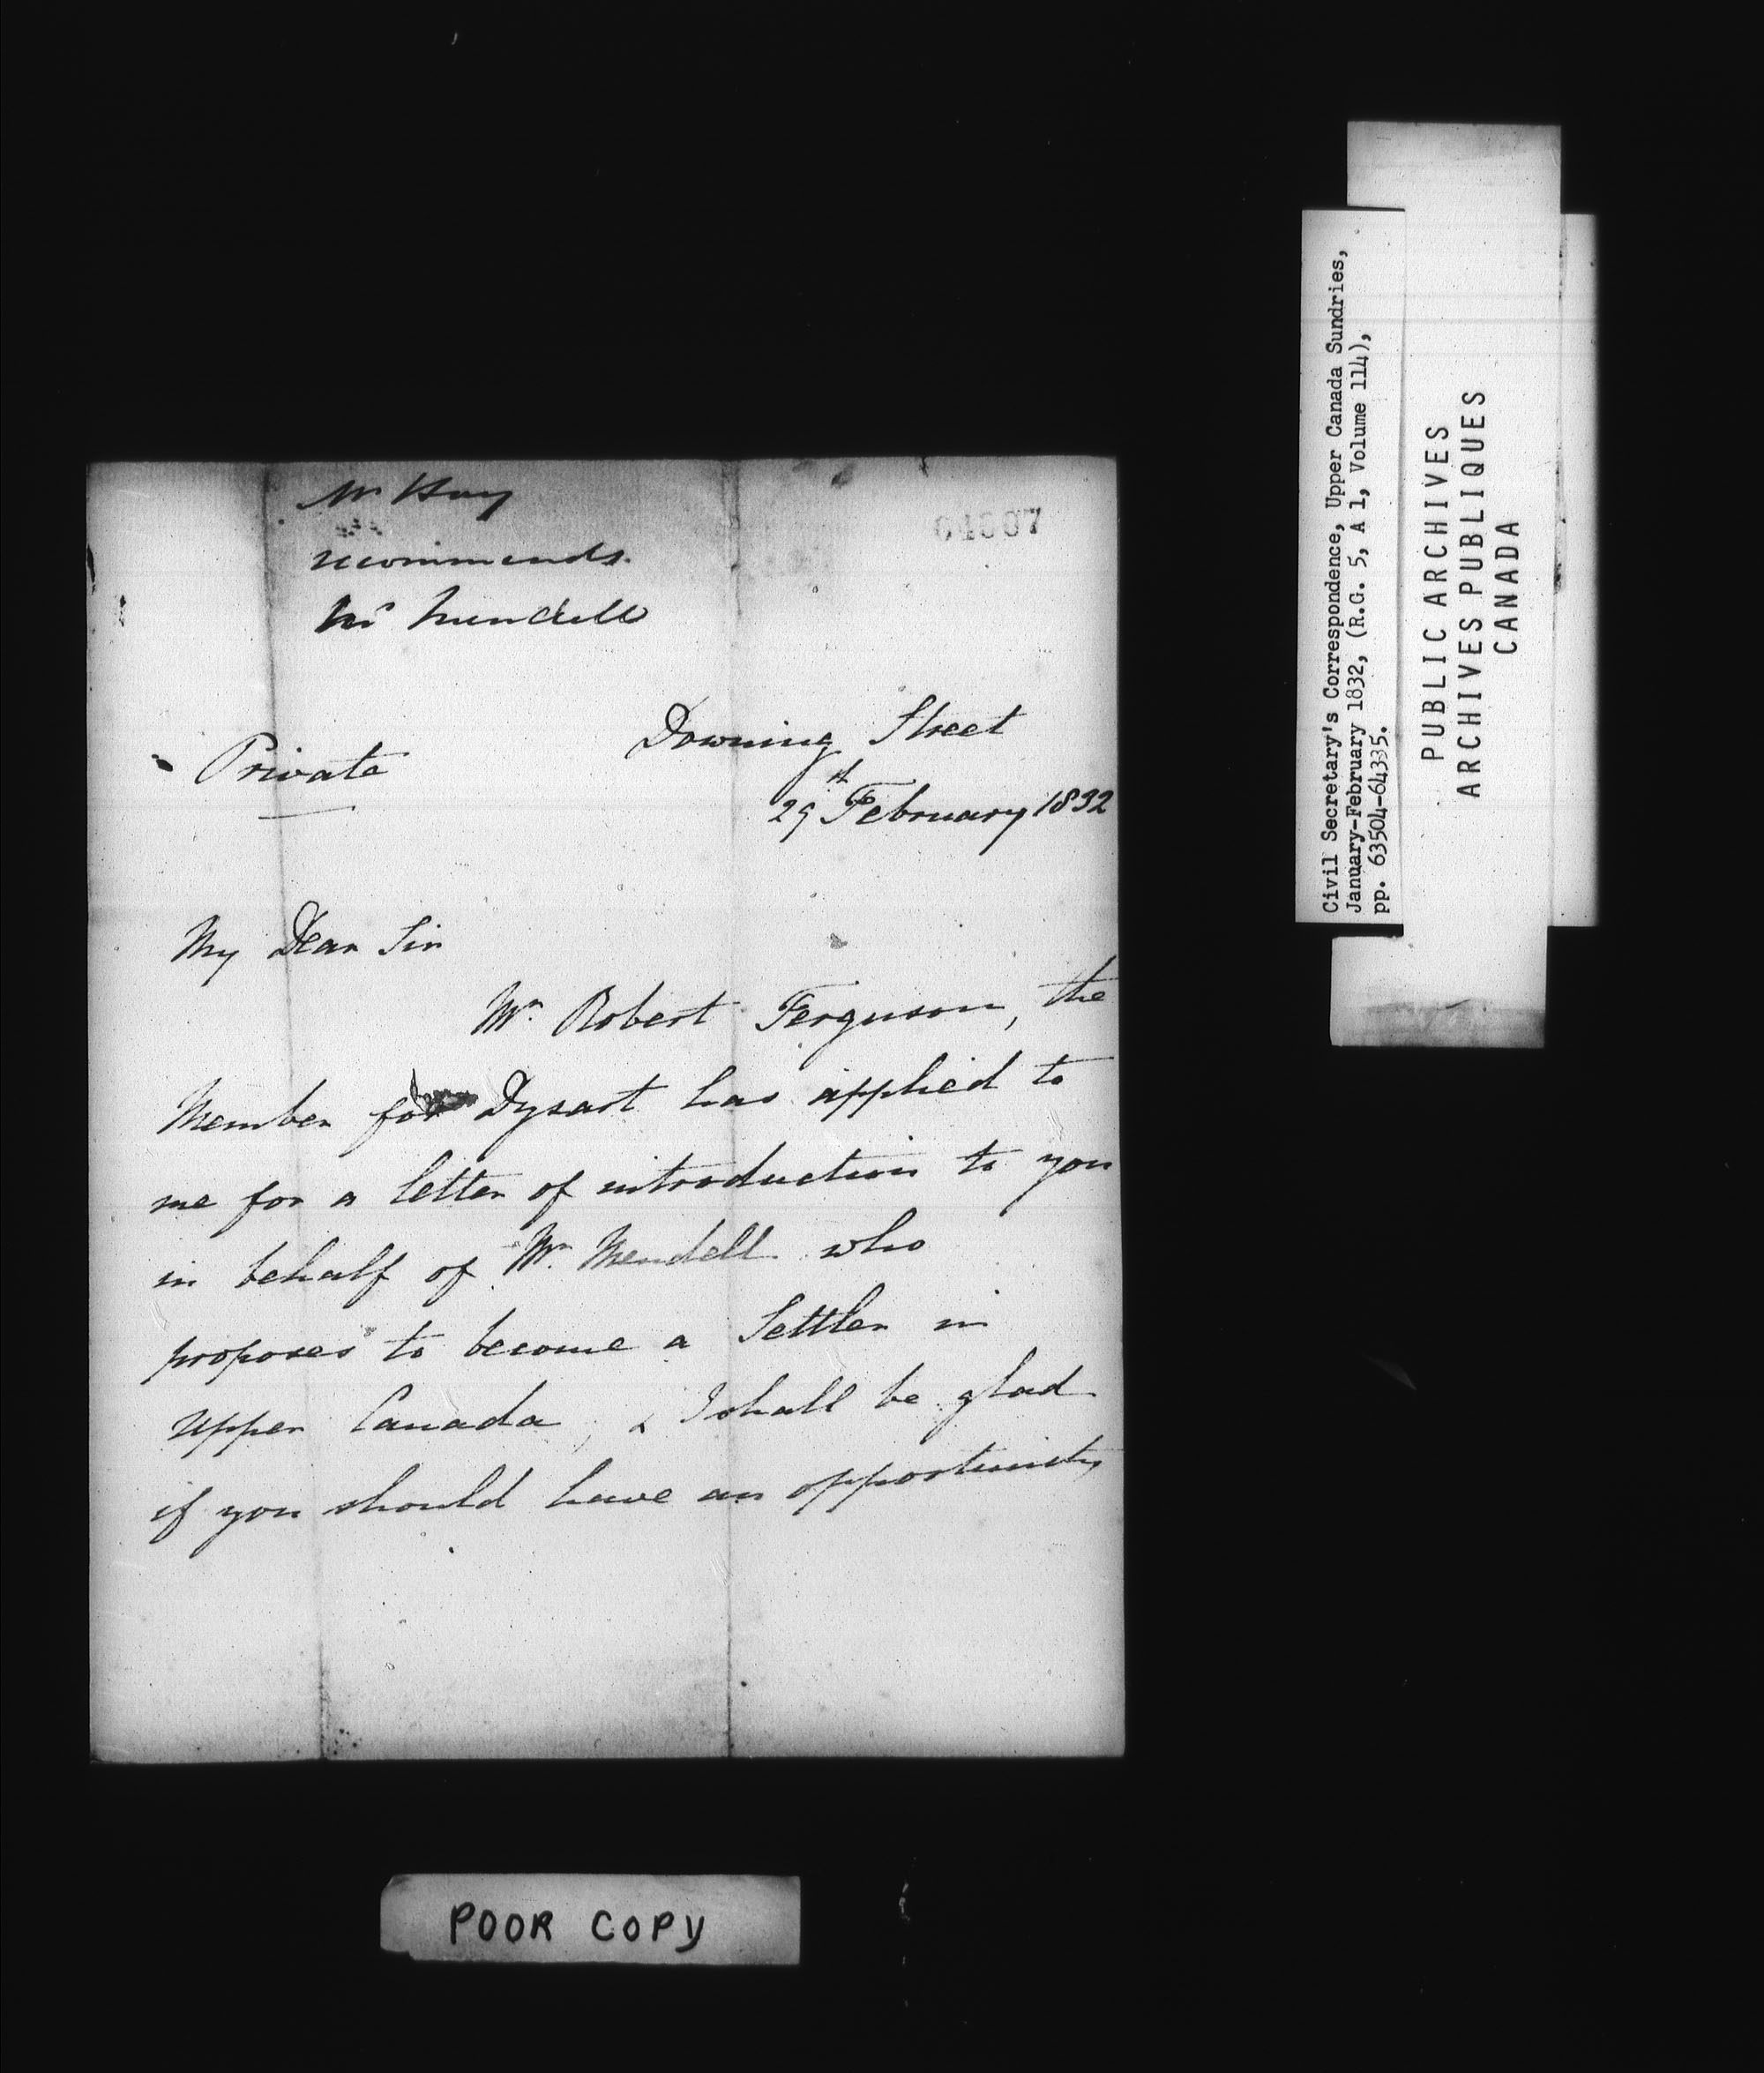 Mr Hay
recommends
Mr Mendell
Private
Downing Street
29th February 1832
My Dear Sir
Mr. Robert Ferguson, the
Member for Dysart has applied to
me for a letter of introduction to you
in behalf of Mr. Mendell who
proposes to become a Settler in
Upper Canada, & I shall be glad
if you should have an opportunity
POOR COPY
Civil Secretary's Correspondence, Upper Canada Sundries,
January-February 1832, (R.G. 5, A 1, Volume 114),
pp. 63504-64335.
PUBLIC ARCHIVES
ARCHIVES PUBLIQUES
CANADA